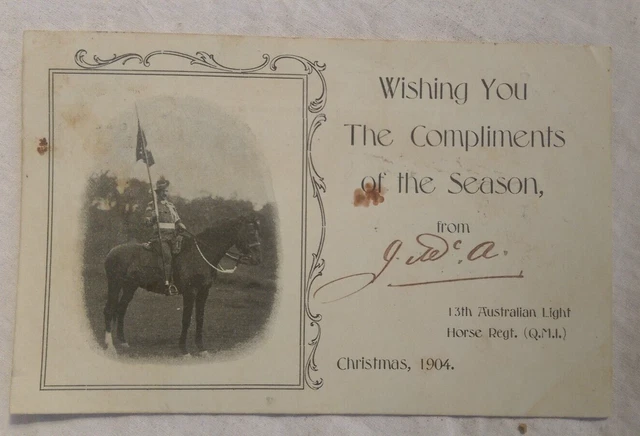 Wishing You
The Compliments
of the Season,
from
J. McA.
13th Australian Light
Horse Regt. (Q.M.I.)
Christmas, 1904.